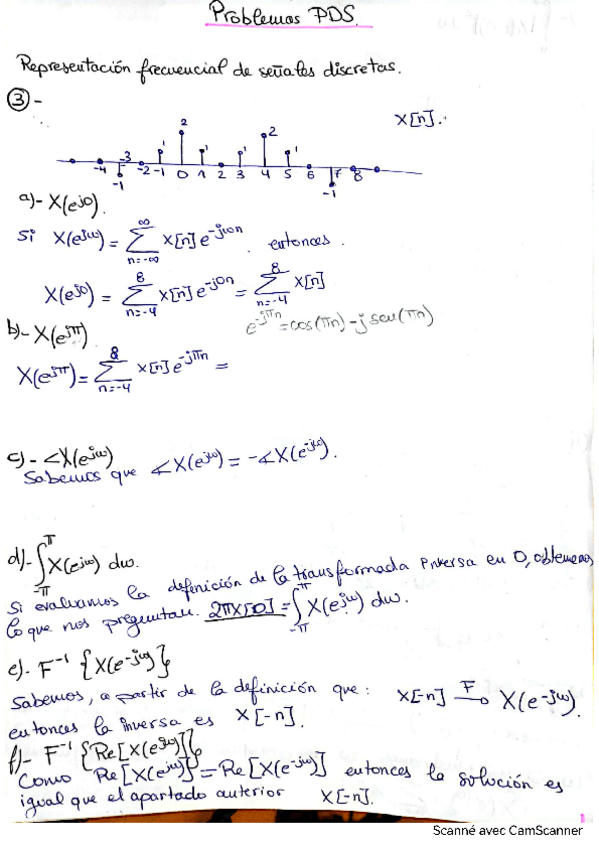 Problemas PDS.
Representación frecuencial de señales discretas.
③-
x[n].
2 2
1 1 1 1
-4 -3 -2 -1 0 1 2 3 4 5 6 7 8
-1 -1
a)- X(e^{j0}).
Si X(e^{jω}) = Σ_{n=-∞}^{∞} x[n] e^{-jωn} entonces.
X(e^{j0}) = Σ_{n=-4}^{8} x[n] e^{-j0n} = Σ_{n=-4}^{8} x[n]
b)- X(e^{jπ})
e^{-jπn} = cos(πn) - j sen(πn)
X(e^{jπ}) = Σ_{n=-4}^{8} x[n] e^{-jπn} =
c)- ∠X(e^{jω})
Sabemos que ∠X(e^{jω}) = -∠X(e^{-jω}).
d)- ∫_{-π}^{π} X(e^{jω}) dω.
Si evaluamos la definición de la transformada inversa en 0, obtenemos
lo que nos preguntan. 2πx[0] = ∫_{-π}^{π} X(e^{jω}) dω.
e)- F^{-1} {X(e^{-jω})}
Sabemos, a partir de la definición que: x[-n] →^{F} X(e^{-jω}).
entonces la inversa es x[-n].
f)- F^{-1} {Re[X(e^{jω})]}
Como Re[X(e^{jω})] = Re[X(e^{-jω})] entonces la solución es
igual que el apartado anterior x[-n].
1
Scanné avec CamScanner